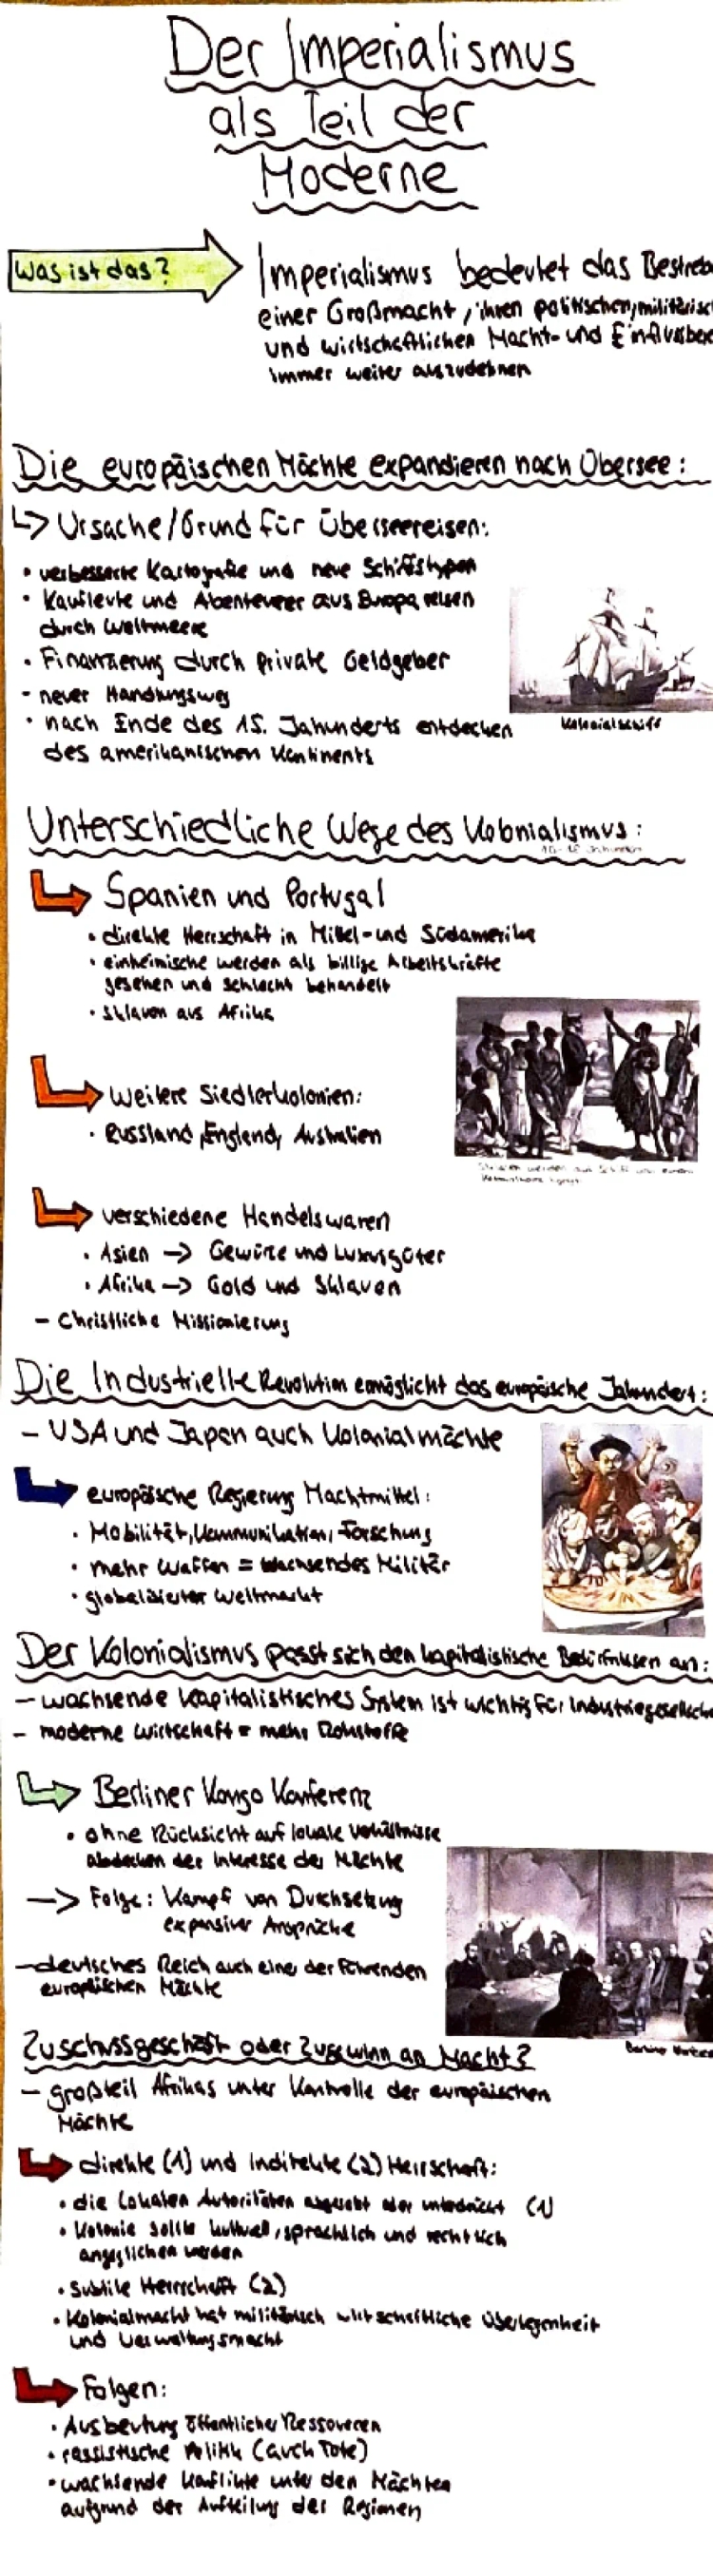 Der Imperialismus
als Teil der
Moderne
Was ist das?
Imperialismus bedeutet das Bestreb
einer Großmacht, ihren politischen, militärisc
und wirtschaftlichen Macht- und Einflussber
immer weiter auszudehnen
Die europäischen Mächte expandieren nach Übersee:
Ursache/Grund für Überseereisen:
• verbesserte Kartografie und neue Schiffstypen
• Kaufleute und Abenteurer aus Europa reisen
durch Weltmeere
• Finanzierung durch private Geldgeber
- neuer Handlungsweg
• nach Ende des 15. Jahunderts entdecken
des amerikanischen Kontinents
Kolonialschiff
Unterschiedliche Wege des Kolonialismus:
Spanien und Portugal
• direkte Herrschaft in Mittel- und Südamerika
• einheimische werden als billige Arbeitskräfte
gesehen und schlecht behandelt
• Sklaven aus Afrika
weitere Siedlerkolonien:
• Russland, England, Australien
verschiedene Handelswaren
• Asien -> Gewürze und Luxusgüter
• Afrika -> Gold und Sklaven
- Christliche Missionierung
Die Industrielle Revolution ermöglicht das europäische Jahundert:
- USA und Japan auch Kolonialmächte
europäische Regierung Machtmittel:
• Mobilität, Kommunikation, Forschung
• mehr Waffen = wachsendes Militär
• globalisierter Weltmarkt
Der Kolonialismus passt sich den kapitalistische Bedürfnissen an:
- wachsende kapitalistisches System ist wichtig für Industriegesellsch
- moderne Wirtschaft = mehr Rohstoffe
Berliner Kongo Konferenz
• ohne Rücksicht auf lokale Verhältnisse
abdecken der Interesse der Mächte
-> Folge: Kampf von Durchsetzung
expansiver Ansprüche
- deutsches Reich auch einer der führenden
europäischen Mächte
Berliner
Zuschussgeschäft oder Zugewinn an Macht?
- großteil Afrikas unter Kontrolle der europäischen
Mächte
direkte (1) und indirekte (2) Herrschaft:
• die lokalen Autoritäten abgesetzt oder unterdrückt (1)
• Kolonie sollte kulturell, sprachlich und rechtlich
angeglichen werden
• Subtile Herrschaft (2)
• Kolonialmacht hat militärisch wirtschaftliche Überlegenheit
und Verwaltungsmacht
Folgen:
• Ausbeutung öffentlicher Ressourcen
• rassistische Politik (auch Tote)
• wachsende Konflikte unter den Mächten
aufgrund der Aufteilung der Regionen